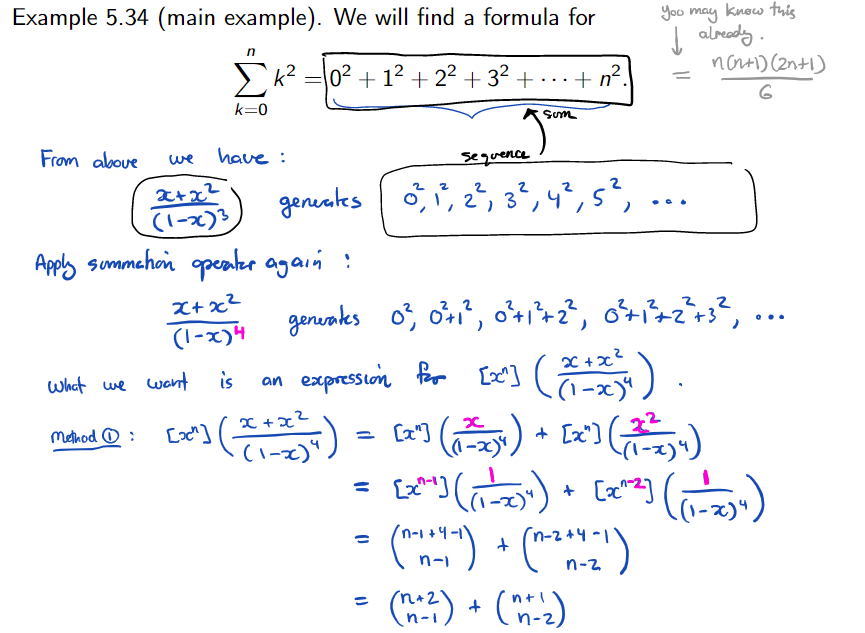 Example 5.34 (main example). We will find a formula for
you may know this
already.
n
∑ k² = 0² + 1² + 2² + 3² + ⋯ + n².
k=0
= n(n+1)(2n+1)
6
sum
sequence
From above we have :
x+x²/(1-x)³ generates 0², 1², 2², 3², 4², 5², ...
Apply summation operator again :
x+x²/(1-x)⁴ generates 0², 0²+1², 0²+1²+2², 0²+1²+2²+3², ...
What we want is an expression for [xⁿ] (x+x²/(1-x)⁴) .
Method ① : [xⁿ] (x+x²/(1-x)⁴) = [xⁿ] (x/(1-x)⁴) + [xⁿ] (x²/(1-x)⁴)
= [xⁿ⁻¹] (1/(1-x)⁴) + [xⁿ⁻²] (1/(1-x)⁴)
= (n-1+4-1 n-1) + (n-2+4-1 n-2)
= (n+2 n-1) + (n+1 n-2)